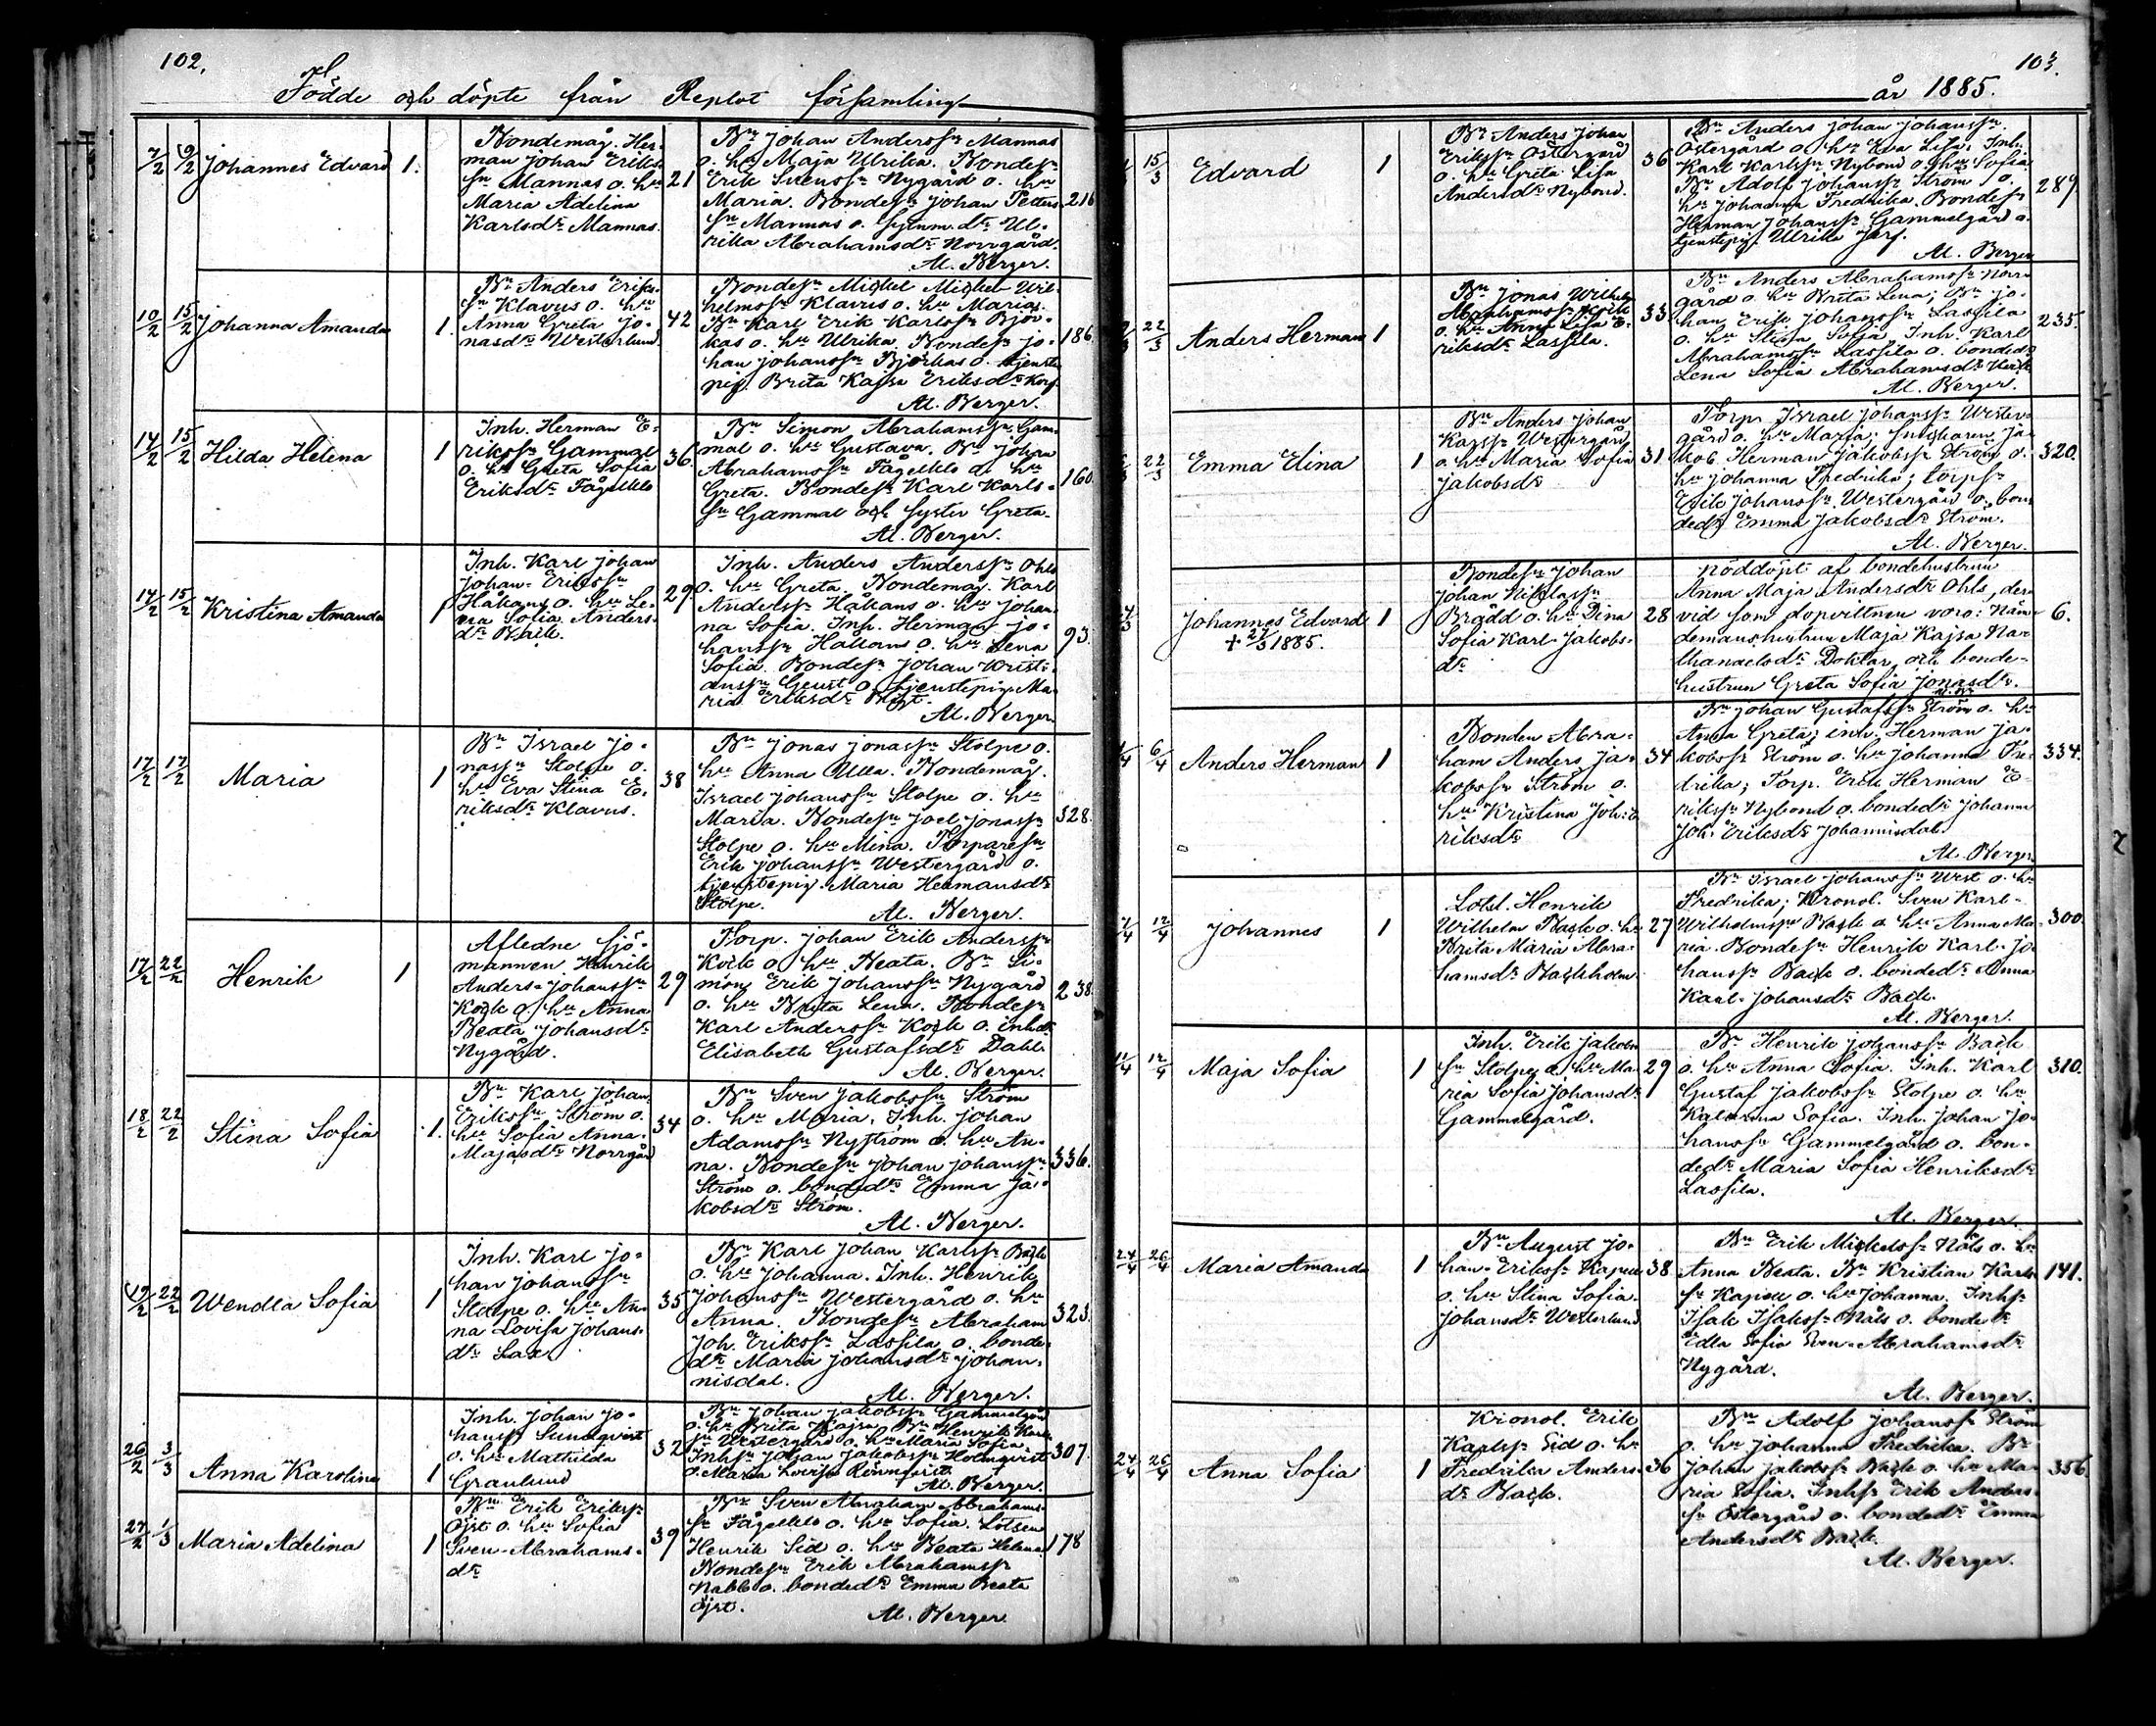 102.
Födde och döpte från Replot församling
7/2 9/2 Johannes Edvard 1.
Bondemåg. Her-
man Johan Eriks-
sn Mannas o. hu
Maria Adelina
Karlsdr Mannas.
21
Bn Johan Anderssn Mannas
o. hu Maja Ulrika. Bondesn
Erik Svenssn Nygård o. hu
Maria. Bondesn Johan Petters-
sn Mannas o. Ul-
rika Abrahamsdr Norrgård.
Al. Berger.
216
10/2 15/2 Johanna Amanda 1.
Bn Anders Eriks-
sn Klavus o. hu
Anna Greta Jo-
nasdr Westerlund
42
Bondesn Mickel Mickel Wil-
helmssn Klavus o. hu Maria.
Bn Karl Erik Karlssn Björ-
kas o. hu Ulrika. Bondesn Jo-
han Johanssn Björkas o. tjenste
pig. Brita Kajsa Eriksdr
Al. Berger.
186.
14/2 15/2 Hilda Helena 1
Inh. Herman E-
rikssn Gammal
o. hu Greta Sofia
Eriksdr Fågelklo
36.
Bn Simon Abrahamssn Gam-
mal o. hu Gustava. Bn Johan
Abrahamssn Fågelklo o. hu
Greta. Bondesn Karl Karls-
sn Gammal och syster Greta.
Al. Berger.
160.
14/2 15/2 Kristina Amanda 1
Inh. Karl Johan
Johan-Erikssn
Håkans o. hu Le-
na Sofia Anders-
dr Back.
29
Inh. Anders Anderssn Ohls
o. hu Greta. Bondemåg. Karl
Anderssn Håkans o. hu Johan-
na Sofia. Inh. Herman Jo-
hanssn Håkans o. hu Lena
Sofia. Bondesn Johan Kristi-
anssn Geust o. tjenstepig. Ma-
ria Eriksdr
Al. Berger.
93.
17/2 17/2 Maria 1
Bn Israel Jo-
nassn Stolpe o.
hu Eva Stina E-
riksdr Klavus.
38
Bn Jonas Jonassn Stolpe o.
hu Anna Ulla. Bondemåg.
Israel Johanssn Stolpe o. hu
Maria. Bondesn Joel Jonassn
Stolpe o. hu Mina. Torparesn
Erik Johanssn Westergård o.
tjenstepig. Maria Hermansdr
Stolpe.
Al. Berger.
328.
17/2 22/2 Henrik 1
Afledne sjö-
mannen Henrik
Anders-Johanssn
Kock o. hu Anna
Beata Johansdr
Nygård.
29
Torp. Johan Erik Anderssn
Kock o. hu Beata. Bn Si-
mon Erik Johanssn Nygård
o. hu Brita Lena. Bondesn
Karl Anderssn Kock o. inhdr
Elisabeth Gustafsdr Dahl.
Al. Berger.
238.
18/2 22/2 Stina Sofia 1.
Bn Karl Johan
Erikssn Ström o.
hu Sofia Anna-
Majasdr Norrgård
34
Bn Sven Jakobssn Ström
o. hu Maria. Inh. Johan
Adamssn Nyström o. hu An-
na. Bondesn Johan Johanssn
Ström o. bondedr Emma Ja-
kobsdr Ström.
Al. Berger.
336.
19/2 22/2 Wendla Sofia 1
Inh. Karl Jo-
han Johanssn
Stolpe o. hu An-
na Lovisa Johans-
dr Lax.
35
Bn Karl Johan Karlssn Back
o. hu Johanna. Inh. Henrik
Johanssn Westergård o. hu
Anna. Bondesn Abraham
Joh. Erikssn Lassila o. bonde-
dr Maria Johansdr Johan-
nisdal.
Al. Berger.
323.
26/2 3/3 Anna Karolina 1
Inh. Johan Jo-
hanssn Sundqvist
o. hu Mathilda
Granlund
32
Bn Johan Jakobssn Gammelgård
o. hu Brita Kajsa. Bn Henrik Karls-
sn Westergård o. hu Maria Sofia.
Inhsn Johan Jakobssn Holmqvist
o. Maria Lovisa Rönnqvist.
Al. Berger.
307.
27/2 1/3 Maria Adelina 1
Bn Erik Erikssn
Öjst o. hu Sofia
Sven-Abrahams-
dr
39
Bn Sven Abraham Abrahams-
sn Fågelklo o. hu Sofia. Lotsen
Henrik Sid o. hu Beata Helena.
Bondesn Erik Abrahamssn
Nabb o. bondedr Emma Beata
Öjst.
Al. Berger.
178
103.
år 1885.
15/3 Edvard 1
Bn Anders Johan
Erikssn Östergård
o. hu Greta Lisa
Andersdr Nybond.
36
Bn Anders Johan Johanssn
Östergård o. hu Eva Lisa. Inh.
Karl Karlssn Nybond o. hu Sofia.
Bn Adolf Johanssn Ström o.
hu Johanna Fredrika. Bondesn
Herman Johanssn Gammelgård o.
tjenstepig. Ulrika
Al. Berger
289.
22/3 Anders Herman 1
Bn Jonas Wilhelm
Abrahamssn Kock
o. hu Anna Lisa E-
riksdr Lassila.
33.
Bn Anders Abrahamssn Norr-
gård o. hu Brita Lena; Bn Jo-
han Erik Johanssn Lassila
o. hu Stina Sofia. Inh. Karl
Abrahamssn Lassila o. bondedr
Lena Sofia Abrahamsdr Kock
Al. Berger.
235.
22/3 Emma Elina 1
Bn Anders Johan
Kajssn Westergård
o. hu Maria Sofia
Jakobsdr
31
Torp. Israel Johanssn Wester-
gård o. hu Maria; Snickaren Ja-
kob Herman Jakobssn Ström o.
hu Johanna Fredrika; torpsn
Erik Johanssn Westergård o. bon-
dedr Emma Jakobsdr Ström.
Al. Berger.
320.
Johannes Edvard 1
+ 27/3 1885.
Bondesn Johan
Johan Niklassn
Brådd o. hu Dina
Sofia Karl-Jakobs-
dr
28
nöddöpt af bondehustrun
Anna Maja Andersdr Ohls, der-
vid som dopvittnen voro: Näm-
demanshustrun Maja Kajsa Na-
thanaelsdr Doktar, och bonde-
hustrun Greta Sofia Jonasdr.
6.
4/4 6/4 Anders Herman 1
Bonden Abra-
ham Anders Ja-
kobssn Ström o.
hu Kristina Joh: E
riksdr
34
Bn Johan Gustafssn Ström o. hu
Anna Greta; inh. Herman Ja-
kobssn Ström o. hu Johanna Fre-
drika; Torp. Erik Herman E-
rikssn Nybond o. bondedr Johanna
Joh. Eriksdr Johannisdal.
Al. Berger
334.
7/4 12/4 Johannes 1
Lotsl. Henrik
Wilhelm Back o. hu
Brita Maria Abra-
hamsdr Backholm
27
Bn Israel Johanssn West o. hu
Fredrika; Kronol. Sven Karl-
Wilhelmssn Back o. hu Anna Ma-
ria. Bondesn Henrik Karl-Jo-
hanssn Back o. bondedr Anna
Karl-Johansdr Back.
Al. Berger.
300.
11/4 12/4 Maja Sofia 1
Inh. Erik Jakobs-
sn Stolpe o. hu Ma-
ria Sofia Johansdr
Gammelgård.
29
Bn Henrik Johanssn Back
o. hu Anna Sofia. Inh. Karl
Gustaf Jakobssn Stolpe o. hu
Katarina Sofia. Inh. Johan Jo-
hanssn Gammelgård o. bon-
dedr Maria Sofia Henriksdr
Lassila.
Al. Berger.
310.
24/4 26/4 Maria Amanda 1
Bn August Jo-
han-Erikssn Kapell
o. hu Stina Sofia
Johansdr Westerlund
38
Bn Erik Mickelssn Nåls o. hu
Anna Beata. Bn Kristian Karls-
sn Kapell o. hu Johanna. Inhsn
Isak Isakssn Nåls o. bondedr
Edla Sofia Sven-Abrahamsdr
Nygård.
Al. Berger.
141.
24/4 26/4 Anna Sofia 1
Kronol. Erik
Karlssn Sid o. hu
Fredrika Anders-
dr Back.
36
Bn Adolf Johanssn Ström
o. hu Johanna Fredrika. Bn
Johan Jakobssn Back o. hu Ma-
ria Sofia. Inhsn Erik Anders-
sn Östergård o. bondedr Emma
Andersdr Back.
Al. Berger.
356.